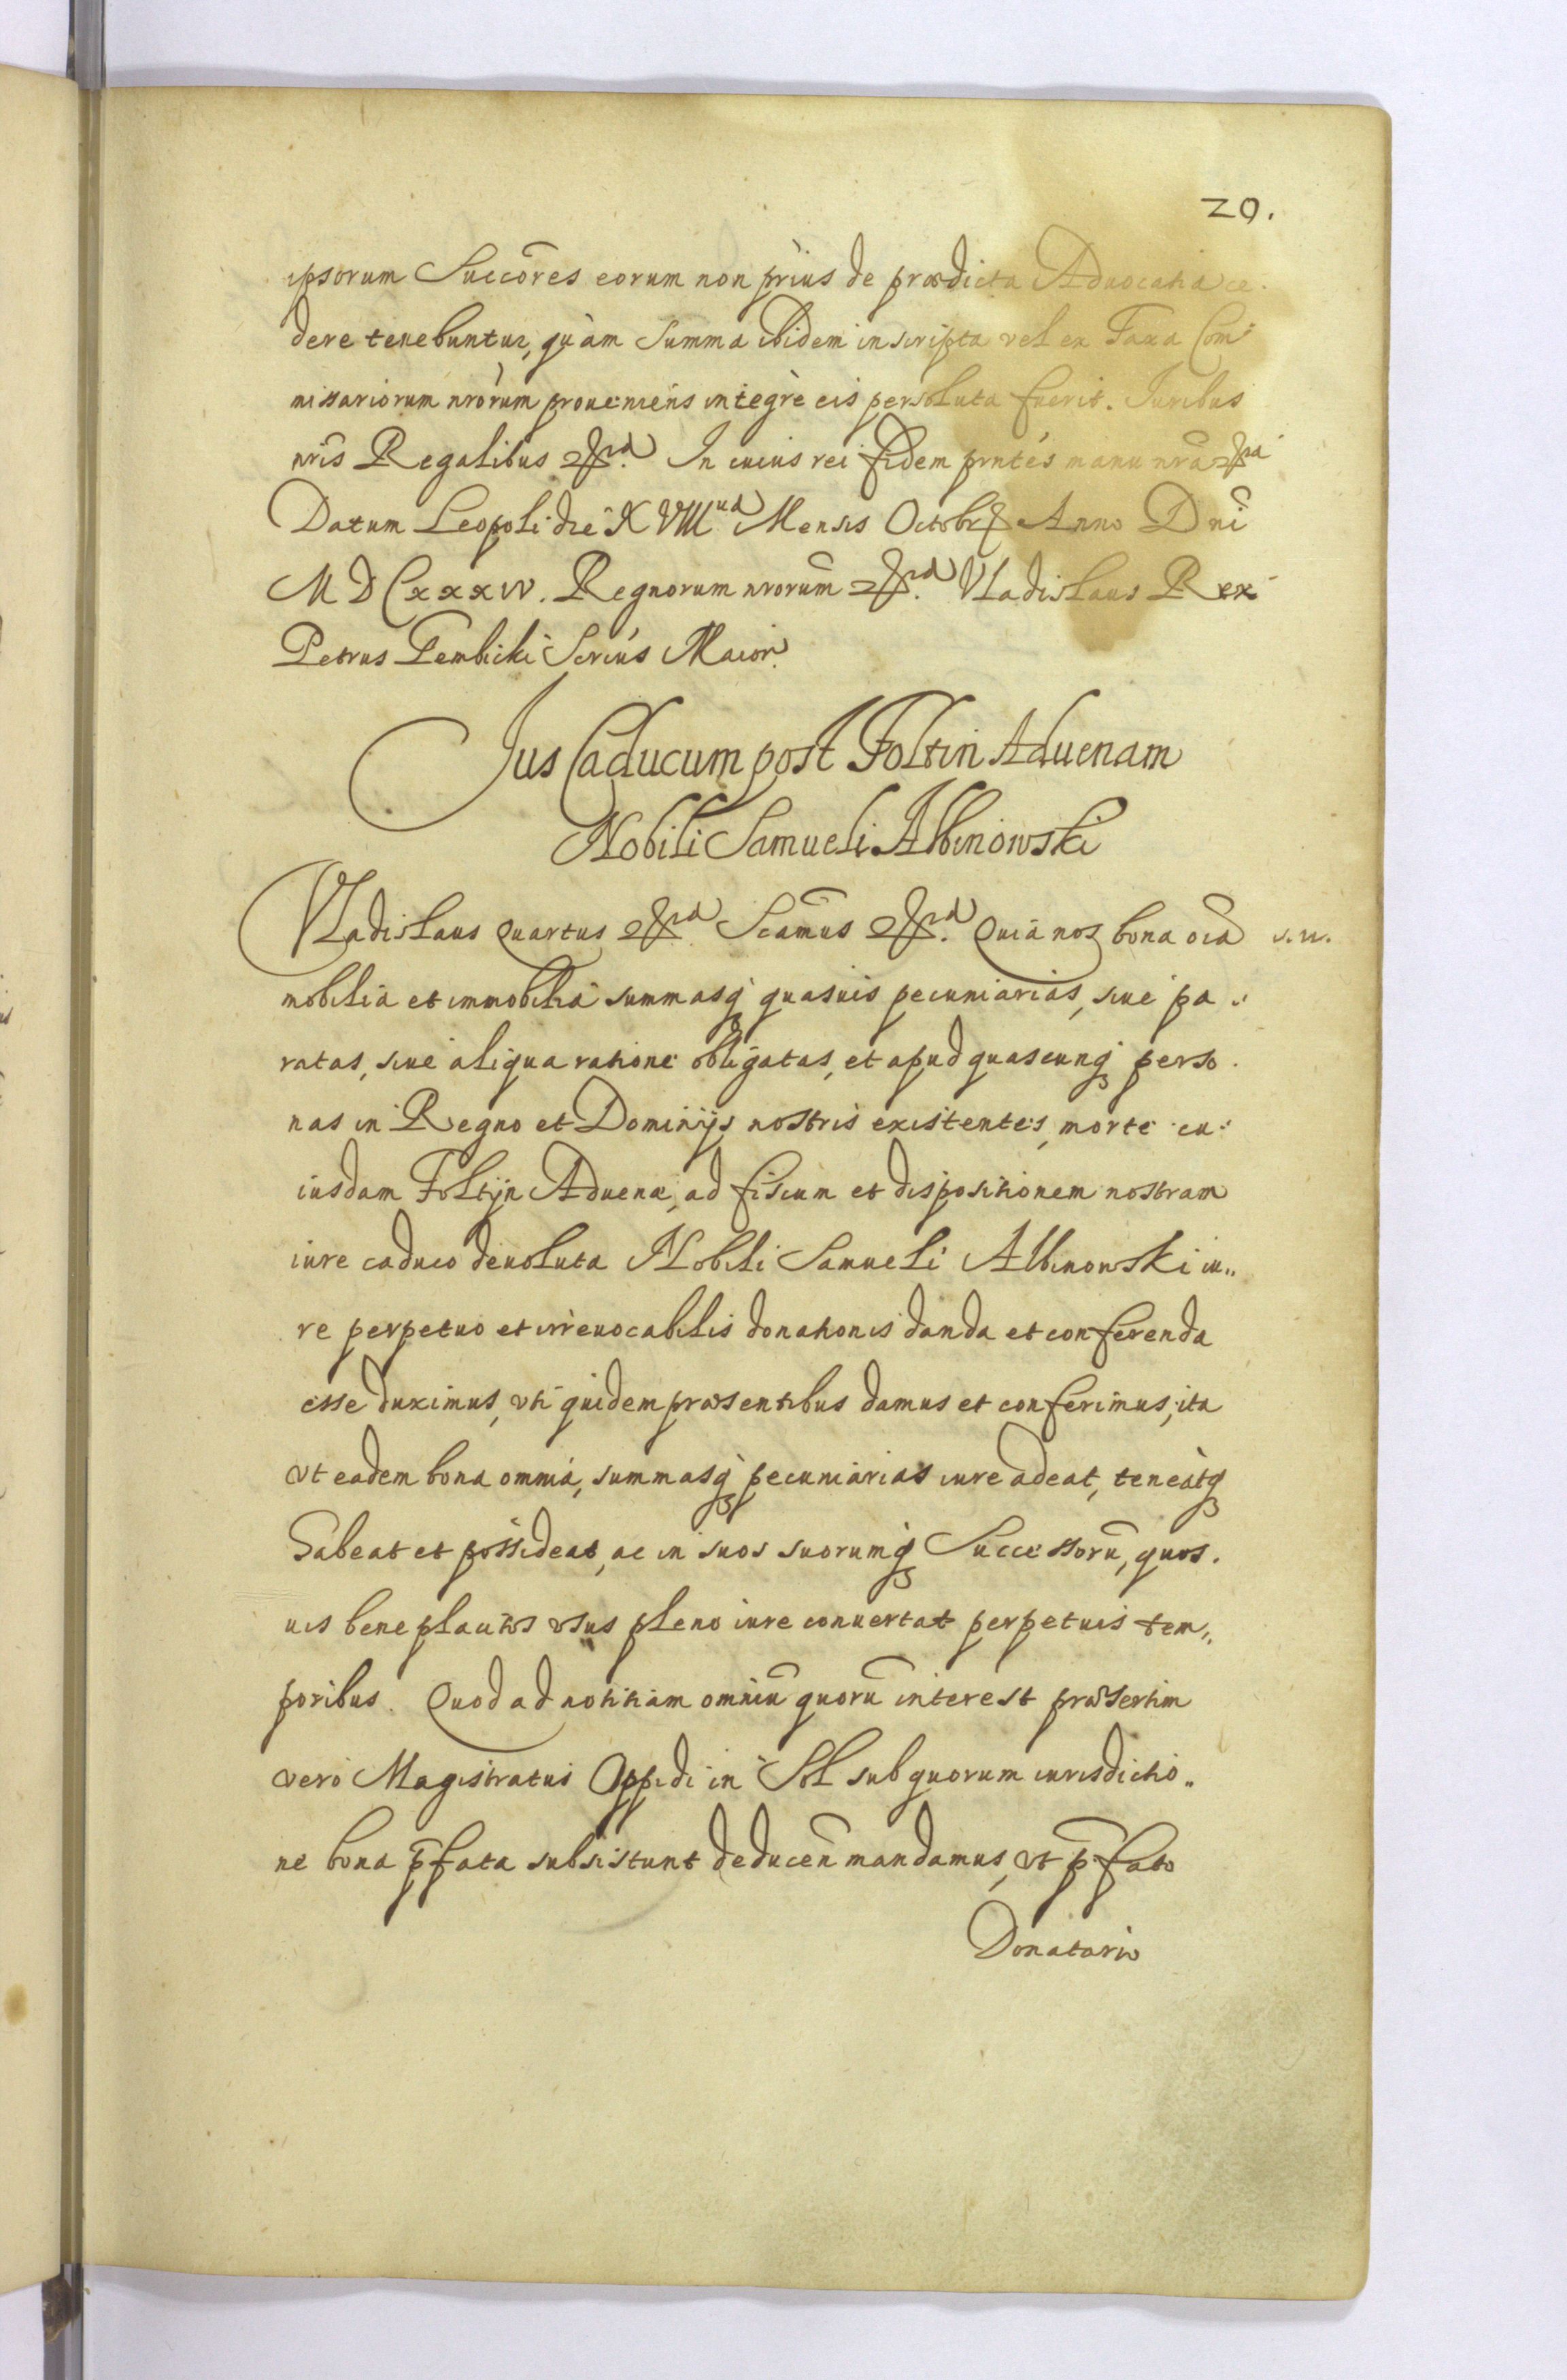 20.
ipsorum Succ̃ores eorum non prius de prædicta Aduocatia ce
dere tenebuntur, quàm summa ibidem inscripta vel ex Taxa Com
missariorum nr̃orum proueniens integrè eis persoluta fuerit. Iuribus
nr̃is Regalibus &ra. In cuius rei fidem prñtes manu nr̃a &ra
Datum Leopoli die XVIII Mensis Octobr Anno Dñi
MDCxxxiv. Regnorum nrorum̃ &ra. Vladislaus Rex
Petrus Gembicki Scrius Maior.
Jus Caducum post Foltin Aduenam
Nobili Samueli Albinowski
Vladislaus Quartus &ra. Scãmus &ra. Quia nos bona oĩa
mobilia et immobilia summasq quasuis pecuniarias, siue pa
ratas, siue aliqua ratione obligatas, et apud quascunq perso
nas in Regno et Dominijs nostris existentes, morte cu
iusdam Foltyn Aduenæ, ad fiscum et dispositionem nostram
iure caduco deuoluta Nobili Samueli Albinowski iu„
re perpetuo et irreuocabilis donationis danda et conferenda
esse duximus, vti quidem præsentibus damus et conferimus, ita
vt eadem bona omnia, summasq pecuniarias iure adeat, teneatq
habeat et possideat, ac in suos suorumq Successorũ, quos
uis beneplacitos vsus pleno iure conuertat perpetuis tem„
poribus. Quod ad notitiam omniũ quorũ interest præsertim
vero Magistratus Oppidi in Sol sub quorum iurisdictio„
ne bona p̃fata subsistunt deduceñ mandamus, vt p̃fato
Donatario